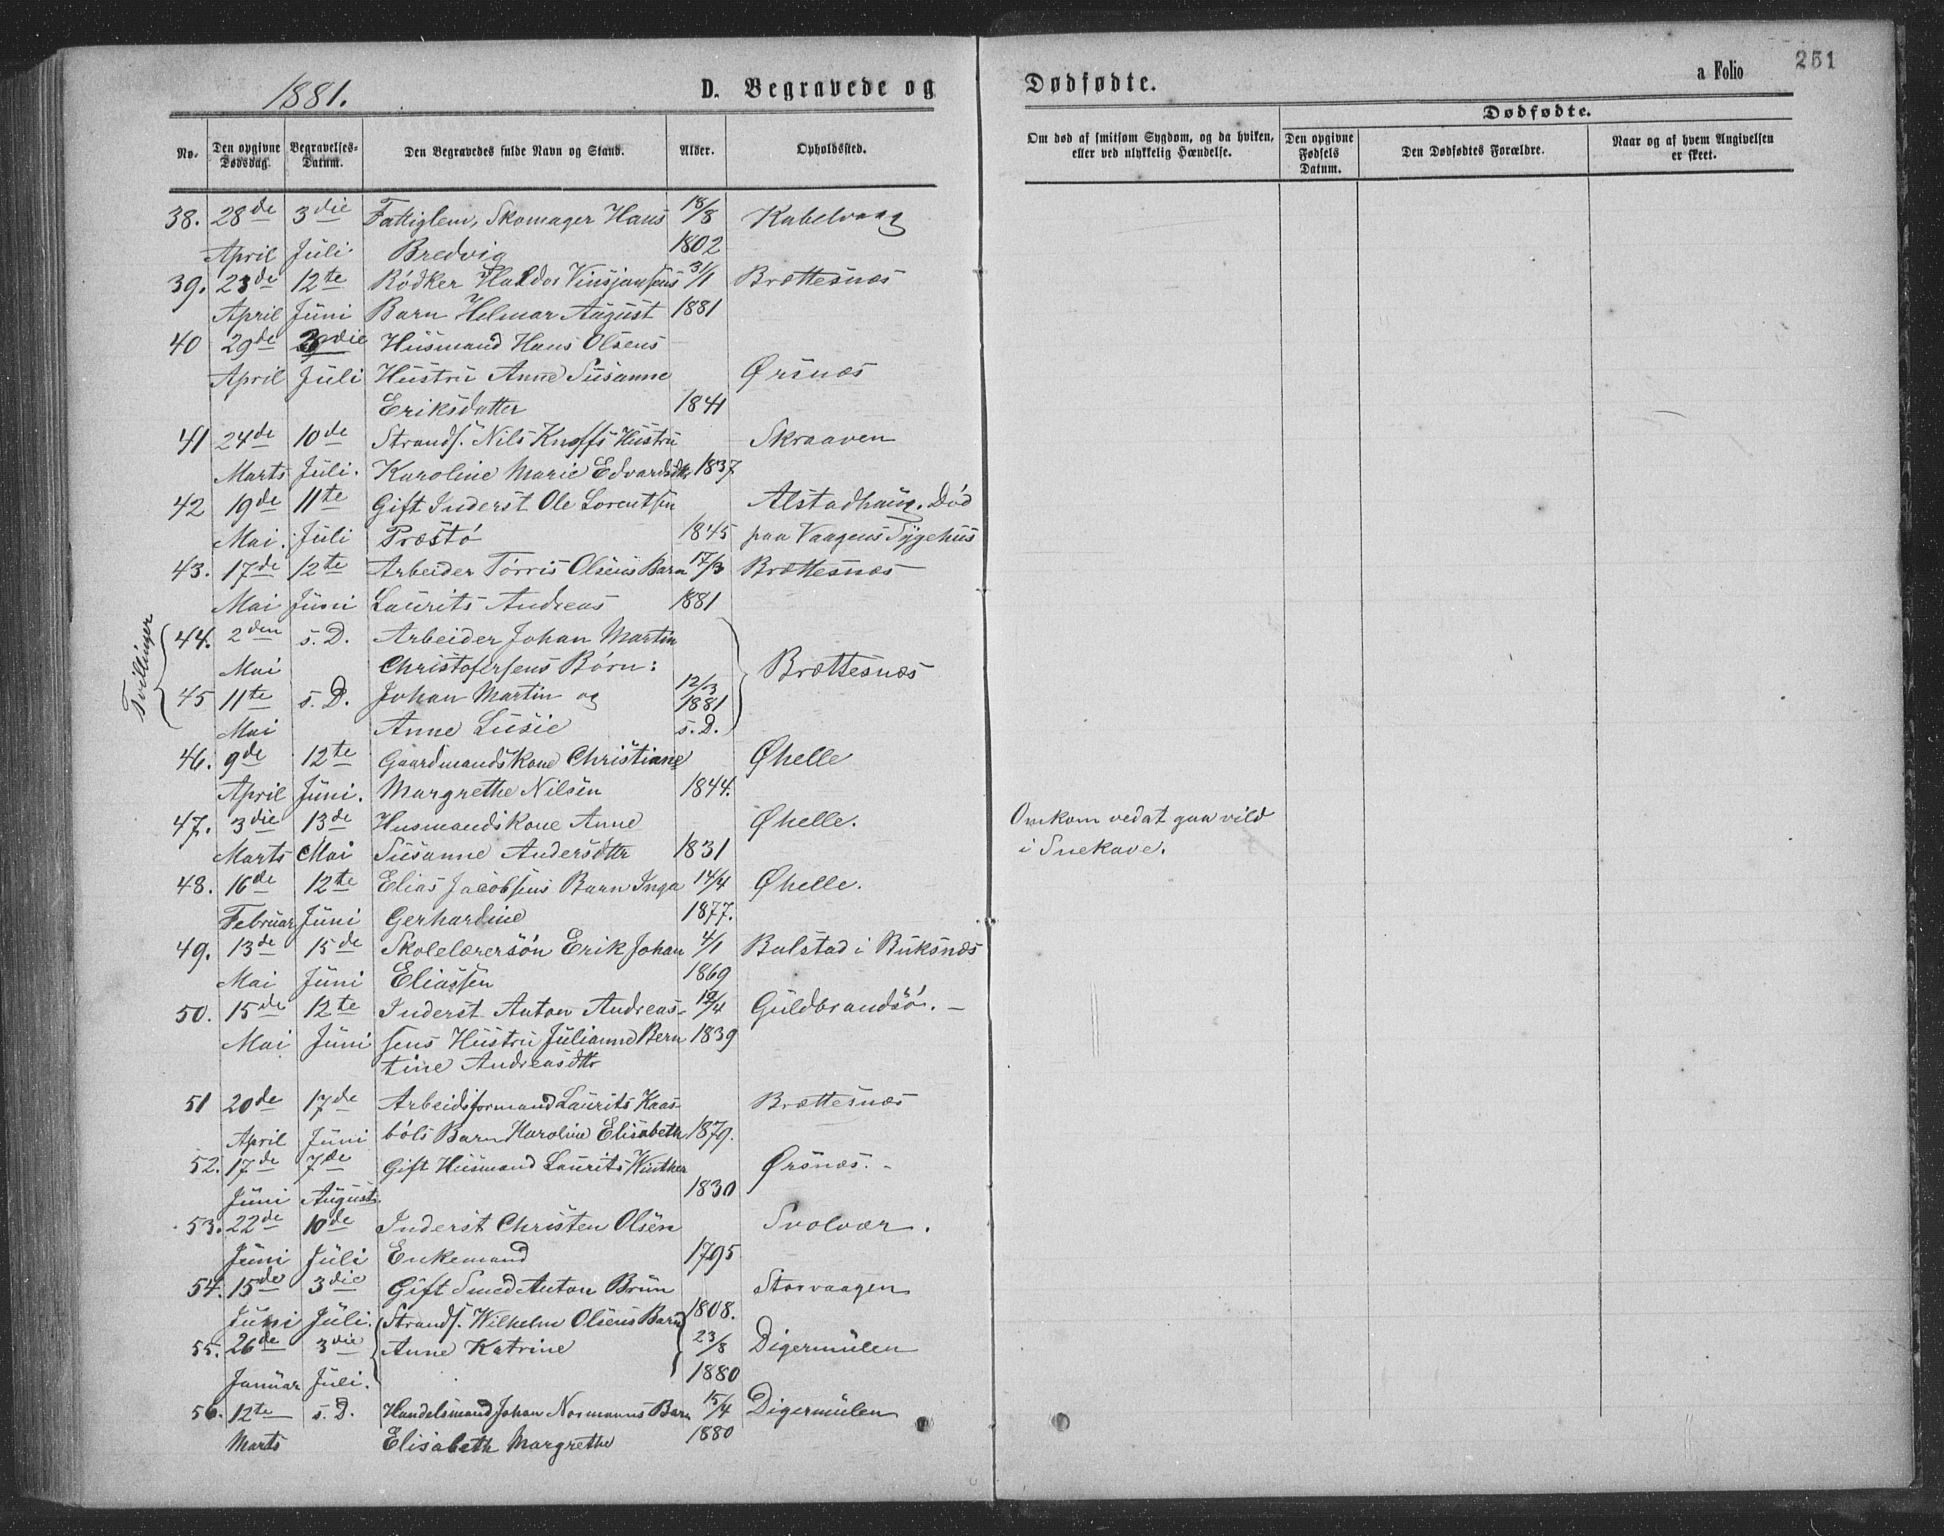 251
1881.
D. Begravede og Dødfødte.
a Folio
No.
Den opgivne Dødsdag.
Begravelses-Datum.
Den Begravedes fulde Navn og Stand.
Alder.
Opholdssted.
Om død af smitsom Sygdom, og da hvilken,
eller ved ulykkelig Hændelse.
Dødfødte.
Den opgivne Fødsels Datum.
Den Dødfødtes Forældre.
Naar og af hvem Angivelsen er skeet.
38. 28de 3die Fattiglem, Skomager Hans 18/8 Kabelvaag
April Juli Bredvig 1802
39. 23de 12te Rødker Haldor Vinsjansens 3/1 Brettesnæs
April Juni Barn Helmar August 1881
40 29de 3die Husmand Hans Olsens
April Juli Hustru Anne Susanne Ørsnæs
Eriksdatter 1841
41 24de 10de Strands. Nils Knoffs Hustru Skraaven
Marts Juli. Karoline Marie Edvardsdtr 1837
42 19de 11te Gift Inderst Ole Lorentsen Alstadhaug. Død
Mai. Juli Præstø 1845 paa Vaagens Sygehus
43. 17de 12te Arbeider Tørris Olsens Barn 17/3 Brettesnæs
Mai Juni Laurits Andreas 1881
Tvillinger
44. 2den s. D. Arbeider Johan Martin
Mai Christofersens Børn: Brættesnæs
45 11te s. D. Johan Martin og 12/3 1881
Mai Anne Lusie s. D.
46. 9de 12te Gaardmandskone Christiane Øhelle
April Juni. Margrethe Nilsen 1844.
47. 3die 13de Husmandskone Anne Øhelle. Omkom ved at gaa vild
Marts Mai Susanne Andersdtr 1831 i Snekave.
48. 16de 12te Elias Jacobsens Barn Inga 14/4 Øhelle.
Februar Juni Gerhardine 1877.
49. 13de 15de Skolelærersøn Erik Johan 4/1 Balstad i Buksnæs
Mai Juni Eliassen 1869
50. 15de 12te Inderst Anton Andreas- 12/4 Guldbrandsø. -
Mai Juni sens Hustru Julianne Bern 1839
tine Andreasdtr
51 20de 17de Arbeidsformand Laurits Kaas- Brættesnæs
April Juni bøls Barn Karoline Elisabeth 1879.
52. 17de 7de Gift Husmand Laurits Winther Ørsnæs. -
Juni August 1830
53. 22de 10de Inderst Christen Olsen Svolvær.
Juni Juli Enkemand 1795
54. 15de 3die Gift Smed Anton Brun Storvaagen
Juni Juli. Strands. Wilhelm Olsens Barn 1808.
55. 26de 3die Anne Katrine 23/8 Digermulen
Januar Juli. 1880
56. 12te s. D. Handelsmand Johan Normanns Barn 15/4 Digermulen
Marts Elisabeth Margrethe 1880